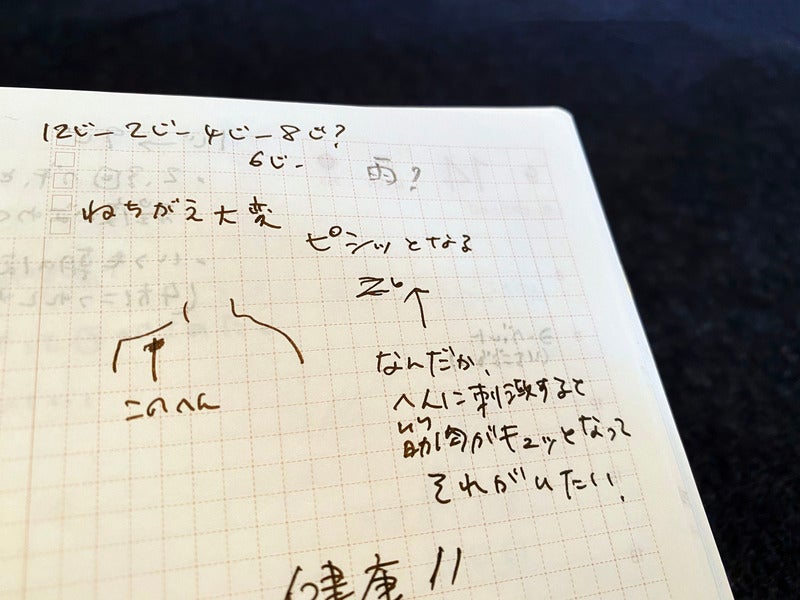 12じー2じー4じー8じ?
6じー
雨?
ねちがえ大変
ピシッとなる
このへん
なんだか、
へんに刺激すると
筋肉がキュッとなって
それがいたい。
健康!!